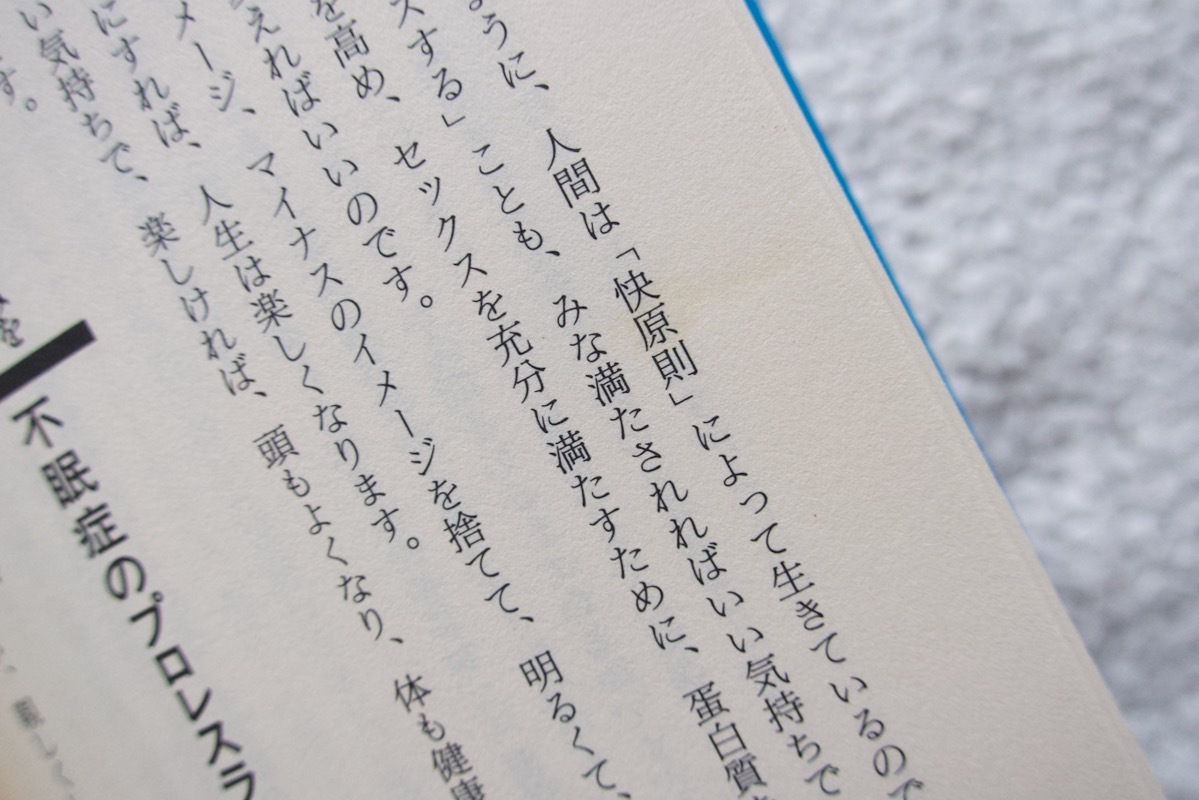 ように、人間は「快原則」によって生きているので
スする」ことも、みな満たされればいい気持ちで
を高め、セックスを充分に満たすために、蛋白質
えればいいのです。
メージ、マイナスのイメージを捨てて、明るくて、
にすれば、人生は楽しくなります。
い気持ちで、楽しければ、頭もよくなり、体も健康
す。
を
不眠症のプロレスラ